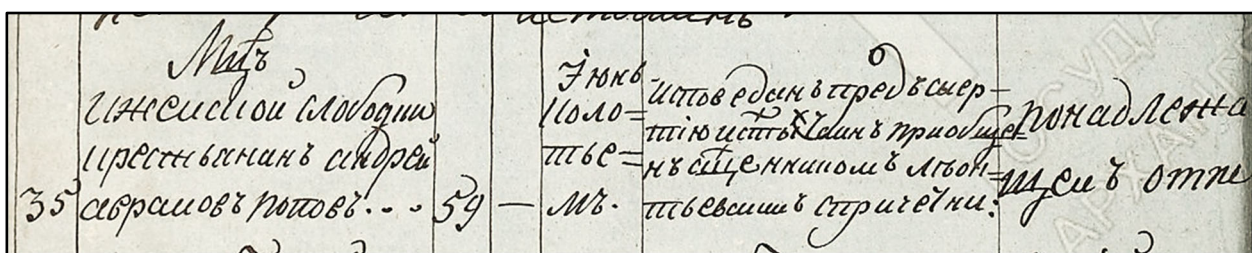 Мцъ
ижемской слободки
крестьянинъ андрей
35 аврамовъ поповъ... 59 —
Июнь
коло=
тье=
мъ.
исповеданъ предъ смер-
тию и стыхъ таинъ приобще
нъ сщенникомъ леон=
тьевымъ с причетни:
понадлежа
щемъ отпе